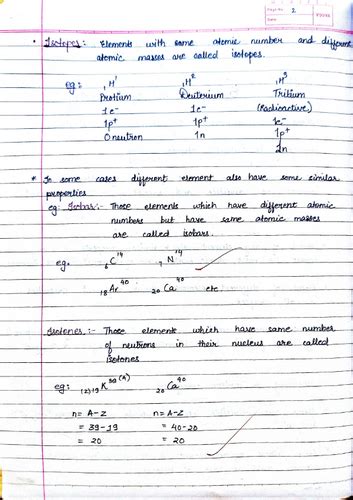 Page No. 2
Date
• Isotopes: Elements with same atomic number and different
atomic masses are called isotopes.
eg: ₁H¹ ₁H² ₁H³
Protium Deuterium Tritium
1e⁻ 1e⁻ (Radioactive)
1p⁺ 1p⁺ 1e⁻
0 neutron 1n 1p⁺
2n
* In some cases different element also have some similar
properties
eg: Isobars:- Those elements which have different atomic
numbers but have same atomic masses
are called isobars.
eg. ₆C¹⁴ ₇N¹⁴
₁₈Ar⁴⁰ ₂₀Ca⁴⁰ etc
Isotones:- Those elements which have same number
of neutrons in their nucleus are called
isotones
eg: (Z)₁₉K³⁹⁽ᴬ⁾ ₂₀Ca⁴⁰
n= A-Z n= A-Z
= 39-19 = 40-20
= 20 = 20